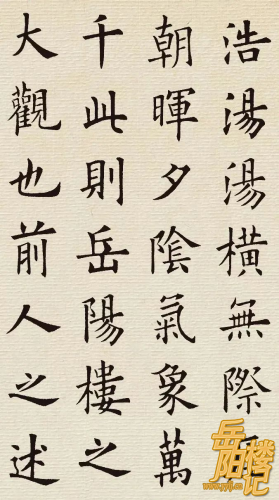 浩湯湯橫無際
朝暉夕陰氣象萬
千此則岳陽樓之
大觀也前人之述
岳阳楼记